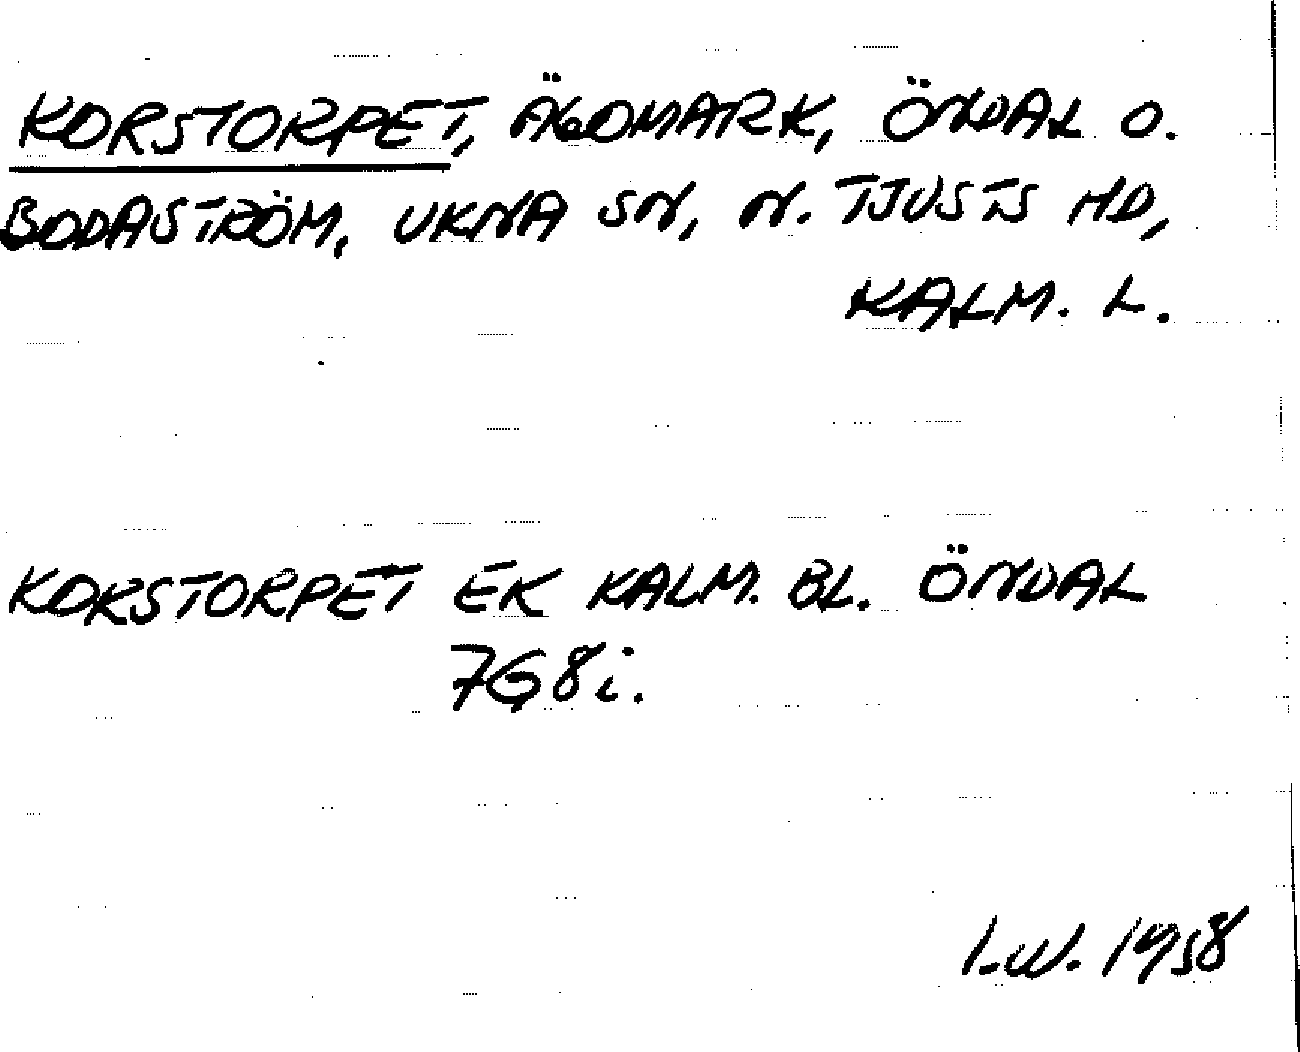 KORSTORPET, ÄGOMARK, ÖNDAL O.
BODASTRÖM, UKNA SN, N. TJUSTS HD,
KALM. L.
KORSTORPET EK KALM. BL. ÖNDAL
7G8i.
I.W. 1958